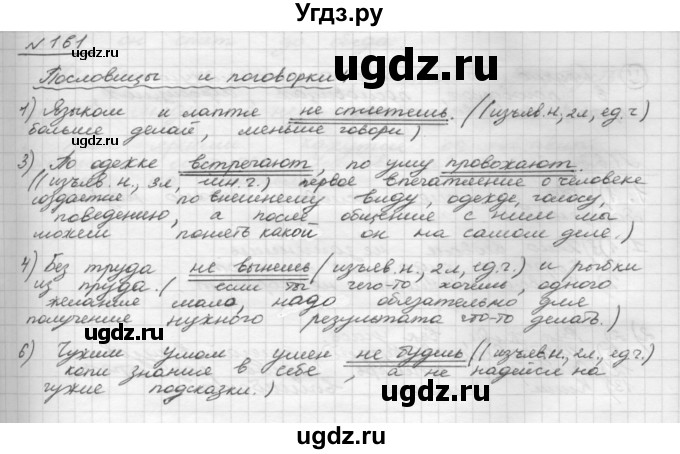 Угдз.ру
№ 161
Пословицы и поговорки
1) Языком и лаптя не сплетёшь. ((изъяв.н, 2л, ед.ч)
больше делай, меньше говори)
3) По одежке встречают, по уму провожают.
((изъяв.н., 3л, мн.ч.) первое впечатление о человеке
создается по внешнему виду, одежде, голосу,
поведению, а после общения с ним мы
можем понять какой он на самом деле.)
4) Без труда не вынешь (изъяв.н., 2л, ед.ч.) и рыбки
из пруда. ( если ты чего-то хочешь, одного
желания мало, надо обязательно для
получения нужного результата что-то делать.)
6) Чужим умом умен не будешь ((изъяв.н., 2л., ед.ч.)
копи знания в себе, а не надейся на
чужие подсказки.)
ugdz.ru
ugdz.ru
ugdz.ru
ugdz.ru
ugdz.ru
ugdz.ru
ugdz.ru
ugdz.ru
ugdz.ru
ugdz.ru
ugdz.ru